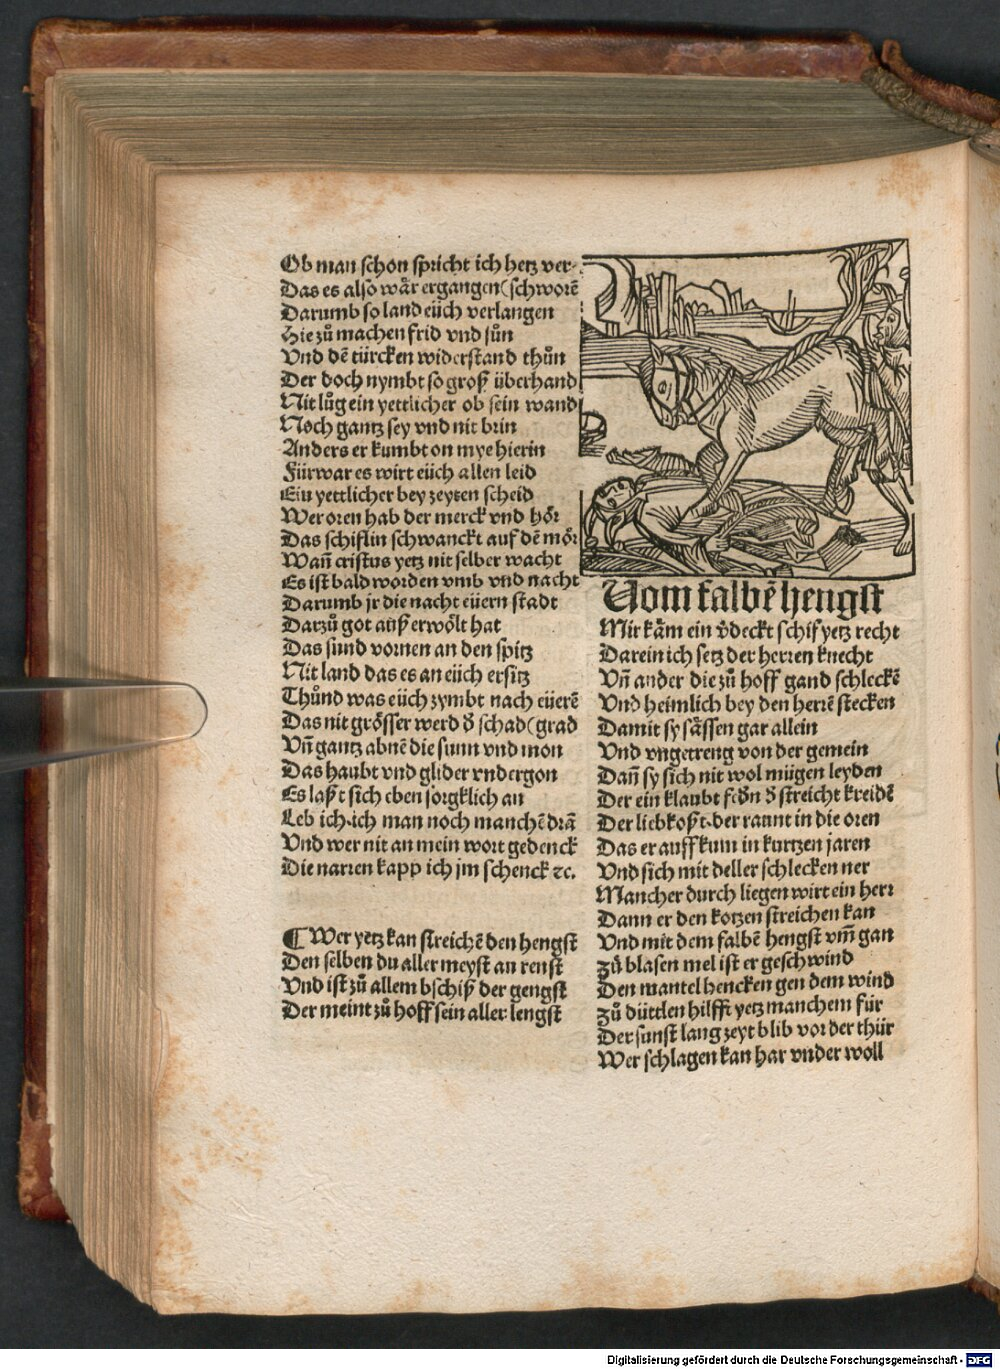 Ob man schon spricht ich hetz ver-
Das es also wår ergangen(schworẽ
Darumb so land eüch verlangen
Hie zů machen frid vnd sůn
Vnd dẽ türcken widerstand thůn
Der doch nymbt so groß überhand
Nit lůg ein yettlicher ob sein wand
Noch gantz sey vnd nit brin
Anders er kumbt on mye hierin
Fürwar es wirt eüch allen leid
Ein yettlicher bey zeyten scheid
Wer oren hab der merck vnd hőr
Das schiflin schwanckt auf dẽ mőr
Wañ cristus yetz nit selber wacht
Es ist bald worden vmb vnd nacht
Darumb jr die nacht eüern stadt
Darzů got auß erwőlt hat
Das sind vornen an den spitz
Nit land das es an eüch ersitz
Thůnd was eüch zymbt nach eüerẽ
Das nit grősser werd d̕ schad(grad
Vñ gantz abnẽ die sunn vnd mon
Das haubt vnd glider vndergon
Es laßt sich eben sorgklich an
Leb ich.ich man noch manchẽ drã
Vnd wer nit an mein wort gedenck
Die narren kapp ich jm schenck ⁊c.
¶ Wer yetz kan streichẽ den hengst
Den selben du aller meyst an renst
Vnd ist zů allem bschiß der gengst
Der meint zů hoff sein aller lengst
Vom falbẽ hengst
Mir kåm ein v̕deckt schif yetz recht
Darein ich setz der herren knecht
Vñ ander die zů hoff gand schleckẽ
Vnd heimlich bey den herrẽ stecken
Damit sy såssen gar allein
Vnd vngetreng von der gemein
Dañ sy sich nit wol mügen leyden
Der ein klaubt fed̕n d̕ streicht kreidẽ
Der liebkoßt.der raunt in die oren
Das er auff kum in kurtzen jaren
Vnd sich mit deller schlecken ner
Mancher durch liegen wirt ein herr
Dann er den kotzen streichen kan
Vnd mit dem falbẽ hengst vm̃ gan
zů blasen mel ist er geschwind
Den mantel hencken gen dem wind
zů düttlen hilfft yetz manchem für
Der sunst lang zeyt blib vor der thür
Wer schlagen kan har vnder woll
Digitalisierung gefördert durch die Deutsche Forschungsgemeinschaft - DFG